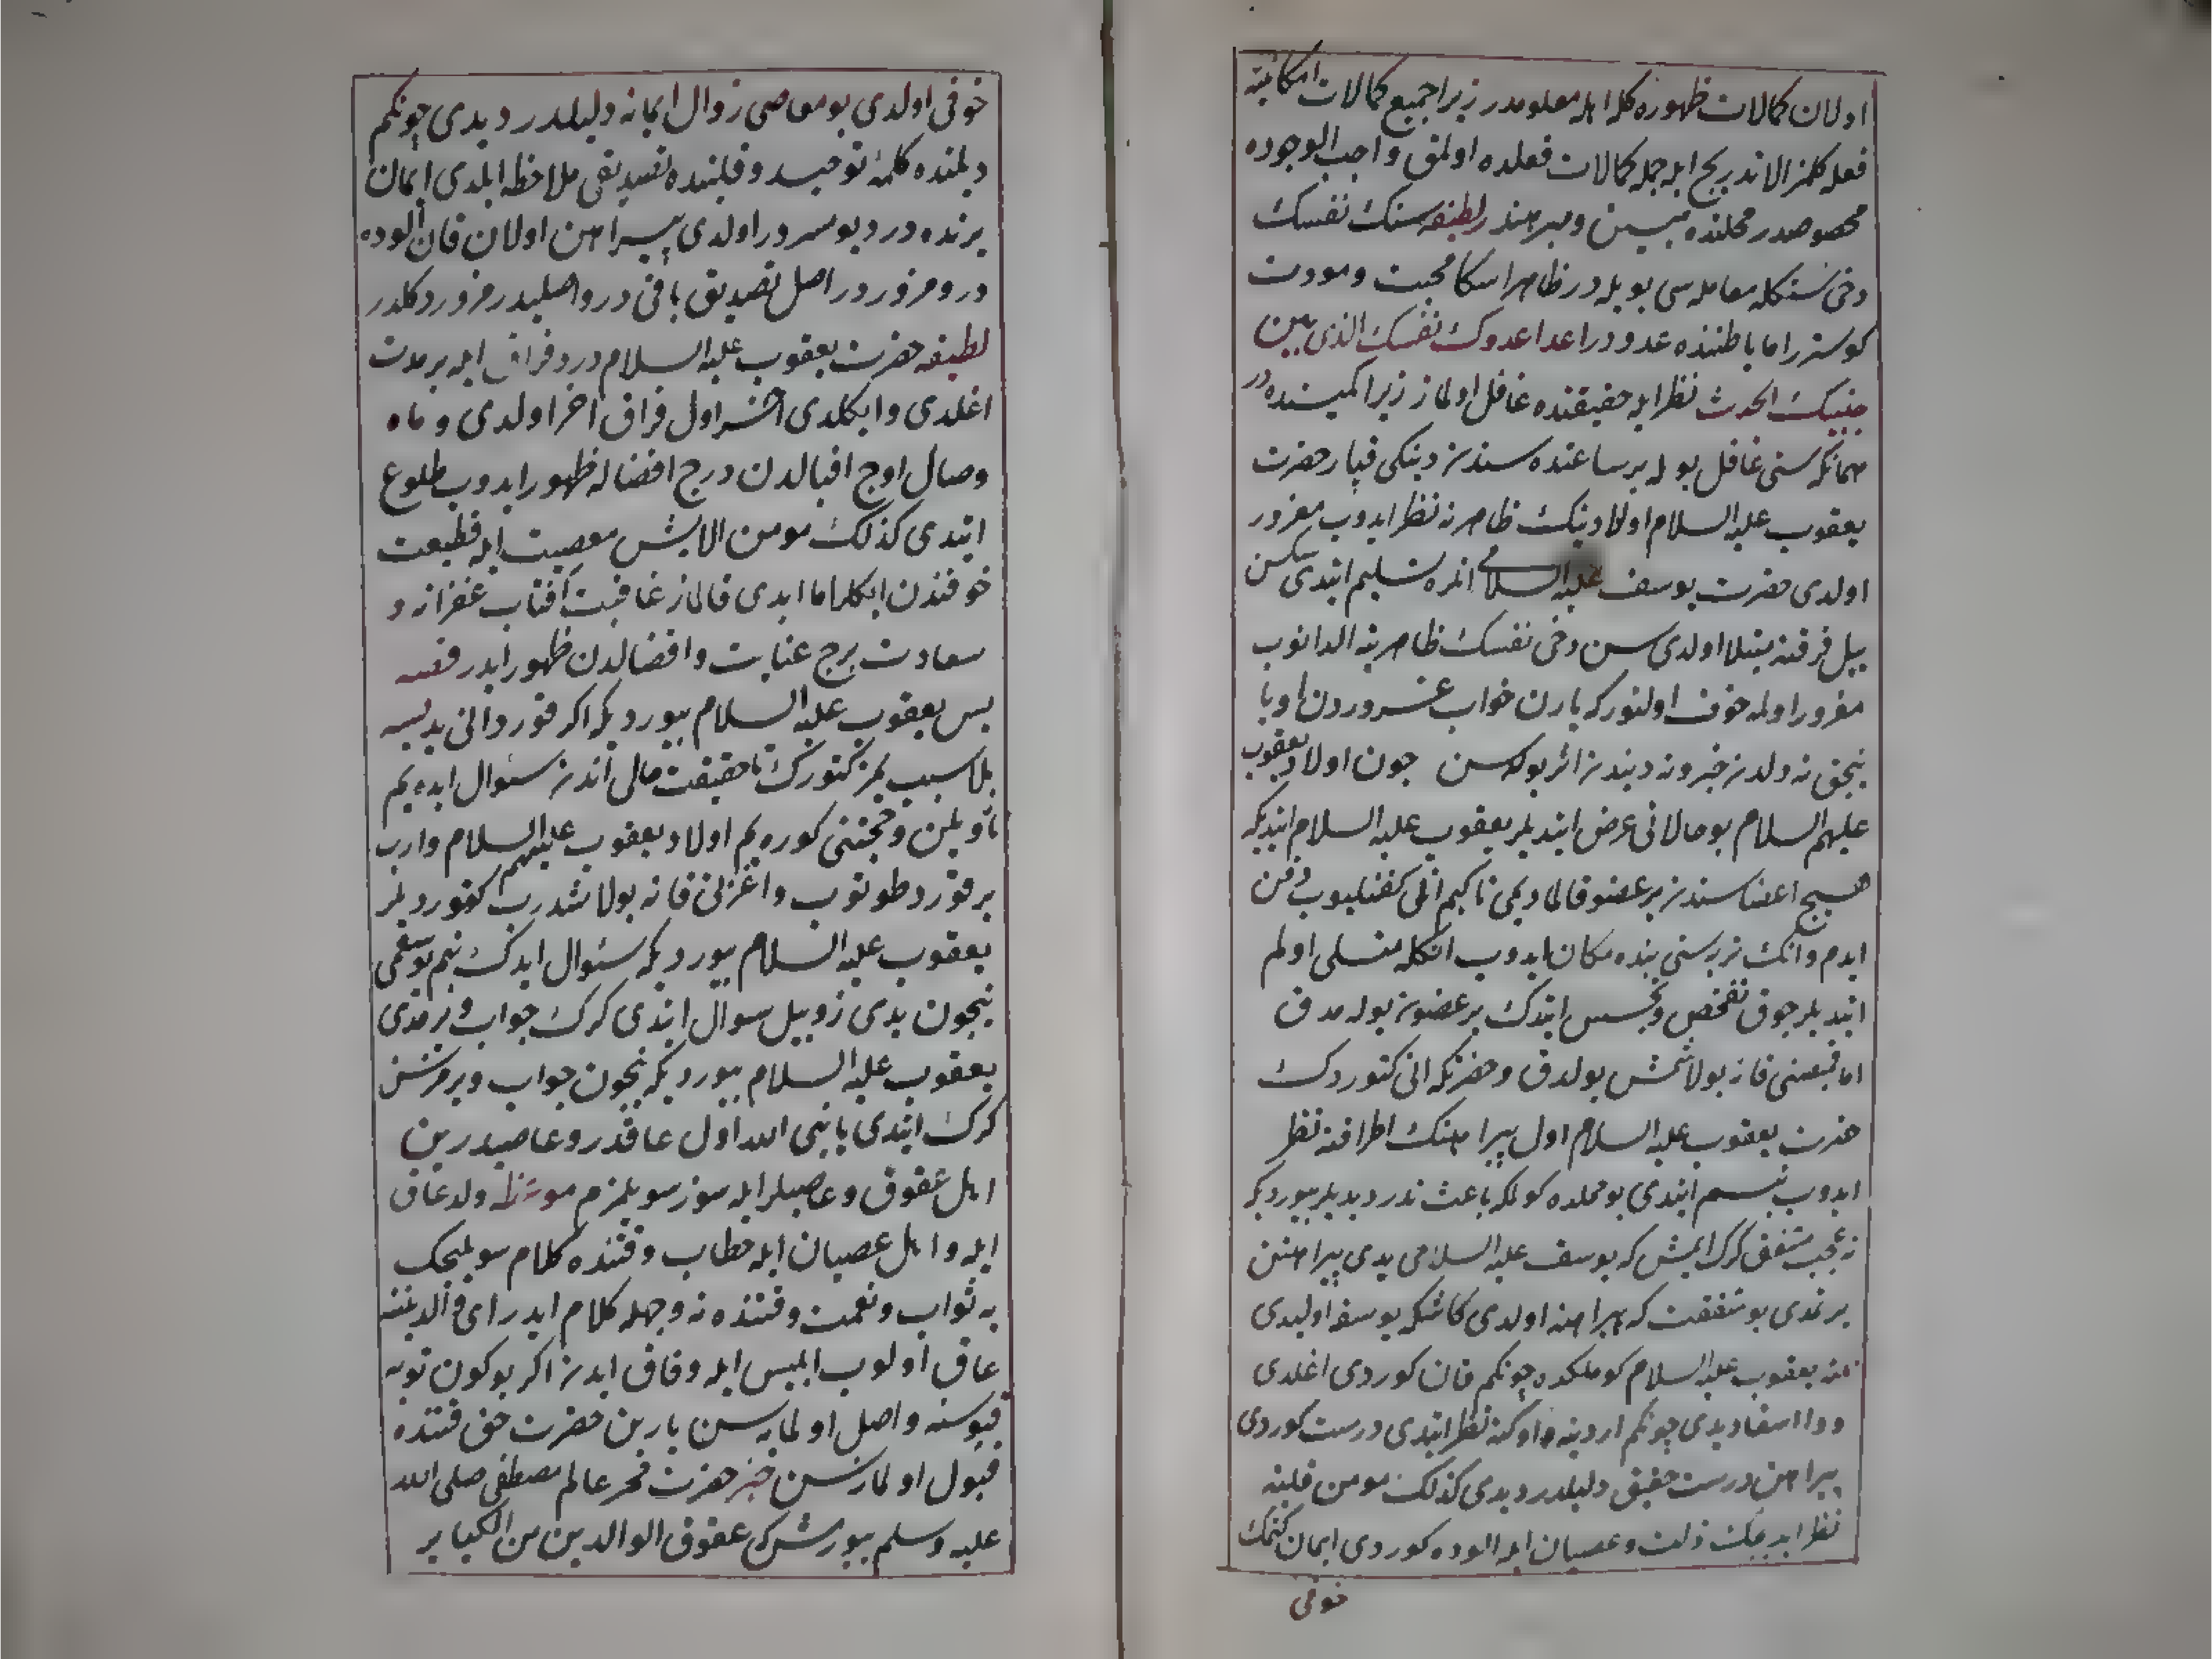 اولان كمالات ظهوره كله ايله معلومدر زيرا جميع كمالات امكانيه
فعله كلمز الا تدريج ايله جمله كمالات فعلده اولمق واجب الوجوده
مخصوصدر محلنده مبين ومبرهندر لطيفه سنك نفسك
دخی سنكله معامله سی بويله در ظاهرا سكا محبت ومودت
كوستر اما باطنده عدودر اعدا عدوك نفسك الذی بين
جنبيك الحدث نظر ايله حقيقتده غافل اولماز زيرا كمينده در
همانكه سنی غافل بوله بر ساعتده سندن دينكی قپار حضرت
يعقوب عليه السلام اولادينك ظاهرنه نظر ايدوب مغرور
اولدی حضرت يوسف عليه السلامی انلره تسليم ايتدی سكسن
ييل فرقته مبتلا اولدی سن دخی نفسك ظاهرينه الدانوب
مغرور اولمه خوف اولنور كه يارن خواب غروردن اويا
نيجق نه ولدن خبر ونه دیندن اثر بوله سن چون اولاد يعقوب
عليهم السلام بو حالاتی عرض ايتديلر يعقوب عليه السلام ايتديكه
هيچ اعضاسندن بر عضو قالمادیمی تا كیم انی كفنليوب دفن
ايدم وانك تربه سنی بنده مكان ايدوب انكله متسلی اولم
ايتديلر چوق تفحص وتجسس ايتدك بر عضون بوله مدق
اما قميصنی قانه بولاشمش بولدق وحضرتكه انی كتوردك
حضرت يعقوب عليه السلام اول پيراهنك اطرافنه نظر
ايدوب تبسم ايتدی بو محلده كولمكه باعث ندر ديديلر بيورديكه
نه عجب مشفق كرك ايمش كه يوسف عليه السلامی يدی پيراهنن
يرتمدی بو شفقت كه پيراهنه اولدی كاشكه يوسفه اوليدی
ينه يعقوب عليه السلام كوملكده چونكم قان كوردی اغلدی
ووا اسفا ديدی چونكم اردينه واوكنه نظر ايتدی درست كوردی
پيراهن درست حقيق دليلدر ديدی كذلك مومن قلبنه
نظر ايديجك ذلت وعصيان ايله الوده كوردی ايمان كتمك
خوفی
خوفی اولدی بو معاصی زوال ايمانه دليلدر ديدی چونكم
ديلنده كلمهٔ توحيد وقلبنده تصديقی ملاحظه ايلدی ايمان
يرنده در ديو مسرور اولدی پيراهن اولان قان الوده
در ومزور در اصل تصديق باقی در واصليدر مزور دكلدر
لطيفه حضرت يعقوب عليه السلام درد فراق ايله بر مدت
اغلدی وايكلدی اخر اول فراق اخر اولدی و ماه
وصال اوج اقبالدن درج افضاله ظهور ايدوب طلوع
ايتدی كذلك مومن الايش معصيت ايله قطيعت
خوفندن ايكلر اما ابدی قالماز عاقبت آفتاب غفران و
سعادت برج عنايت وافضالدن ظهور ايدر قصه
پس يعقوب عليه السلام بيورديكه اكر قورد انی يديسه
بلا سبب يمز كتورك تا حقيقت حالی اندن سئوال ايده يم
تأويلن وحجتنی كوره يم اولاد يعقوب عليهم السلام واروب
بر قورد طوتوب واغزنی قانه بولاشدرب كتورديلر
يعقوب عليه السلام بيورديكه سئوال ايدك بنم يوسفمی
نيچون يدی زوبيل سوال ايتدی كرك جواب ويرمدی
يعقوب عليه السلام بيورديكه نيچون جواب ويرمزسن
كرك ايتدی يا نبی الله اول عاقدر وعاصيدر بن
اهل عقوق وعاصيلر ايله سوز سويلمزم موعظه ولد عاق
ايله واهل عصيان ايله خطاب وقتنده كلام سويليجك
يه ثواب ونعمت وقتنده نه وجهله كلام ايدر ای والديننه
عاق اولوب ابليس ايله وفاق ايدن اكر بوكون توبه
قپوسنه واصل اولمايه سن يارين حضرت حق قتنده
قبول اولمازسن خبر حضرت فخر عالم مصطفی صلی الله
عليه وسلم بيورمش كی عقوق الوالدين من الكبایر